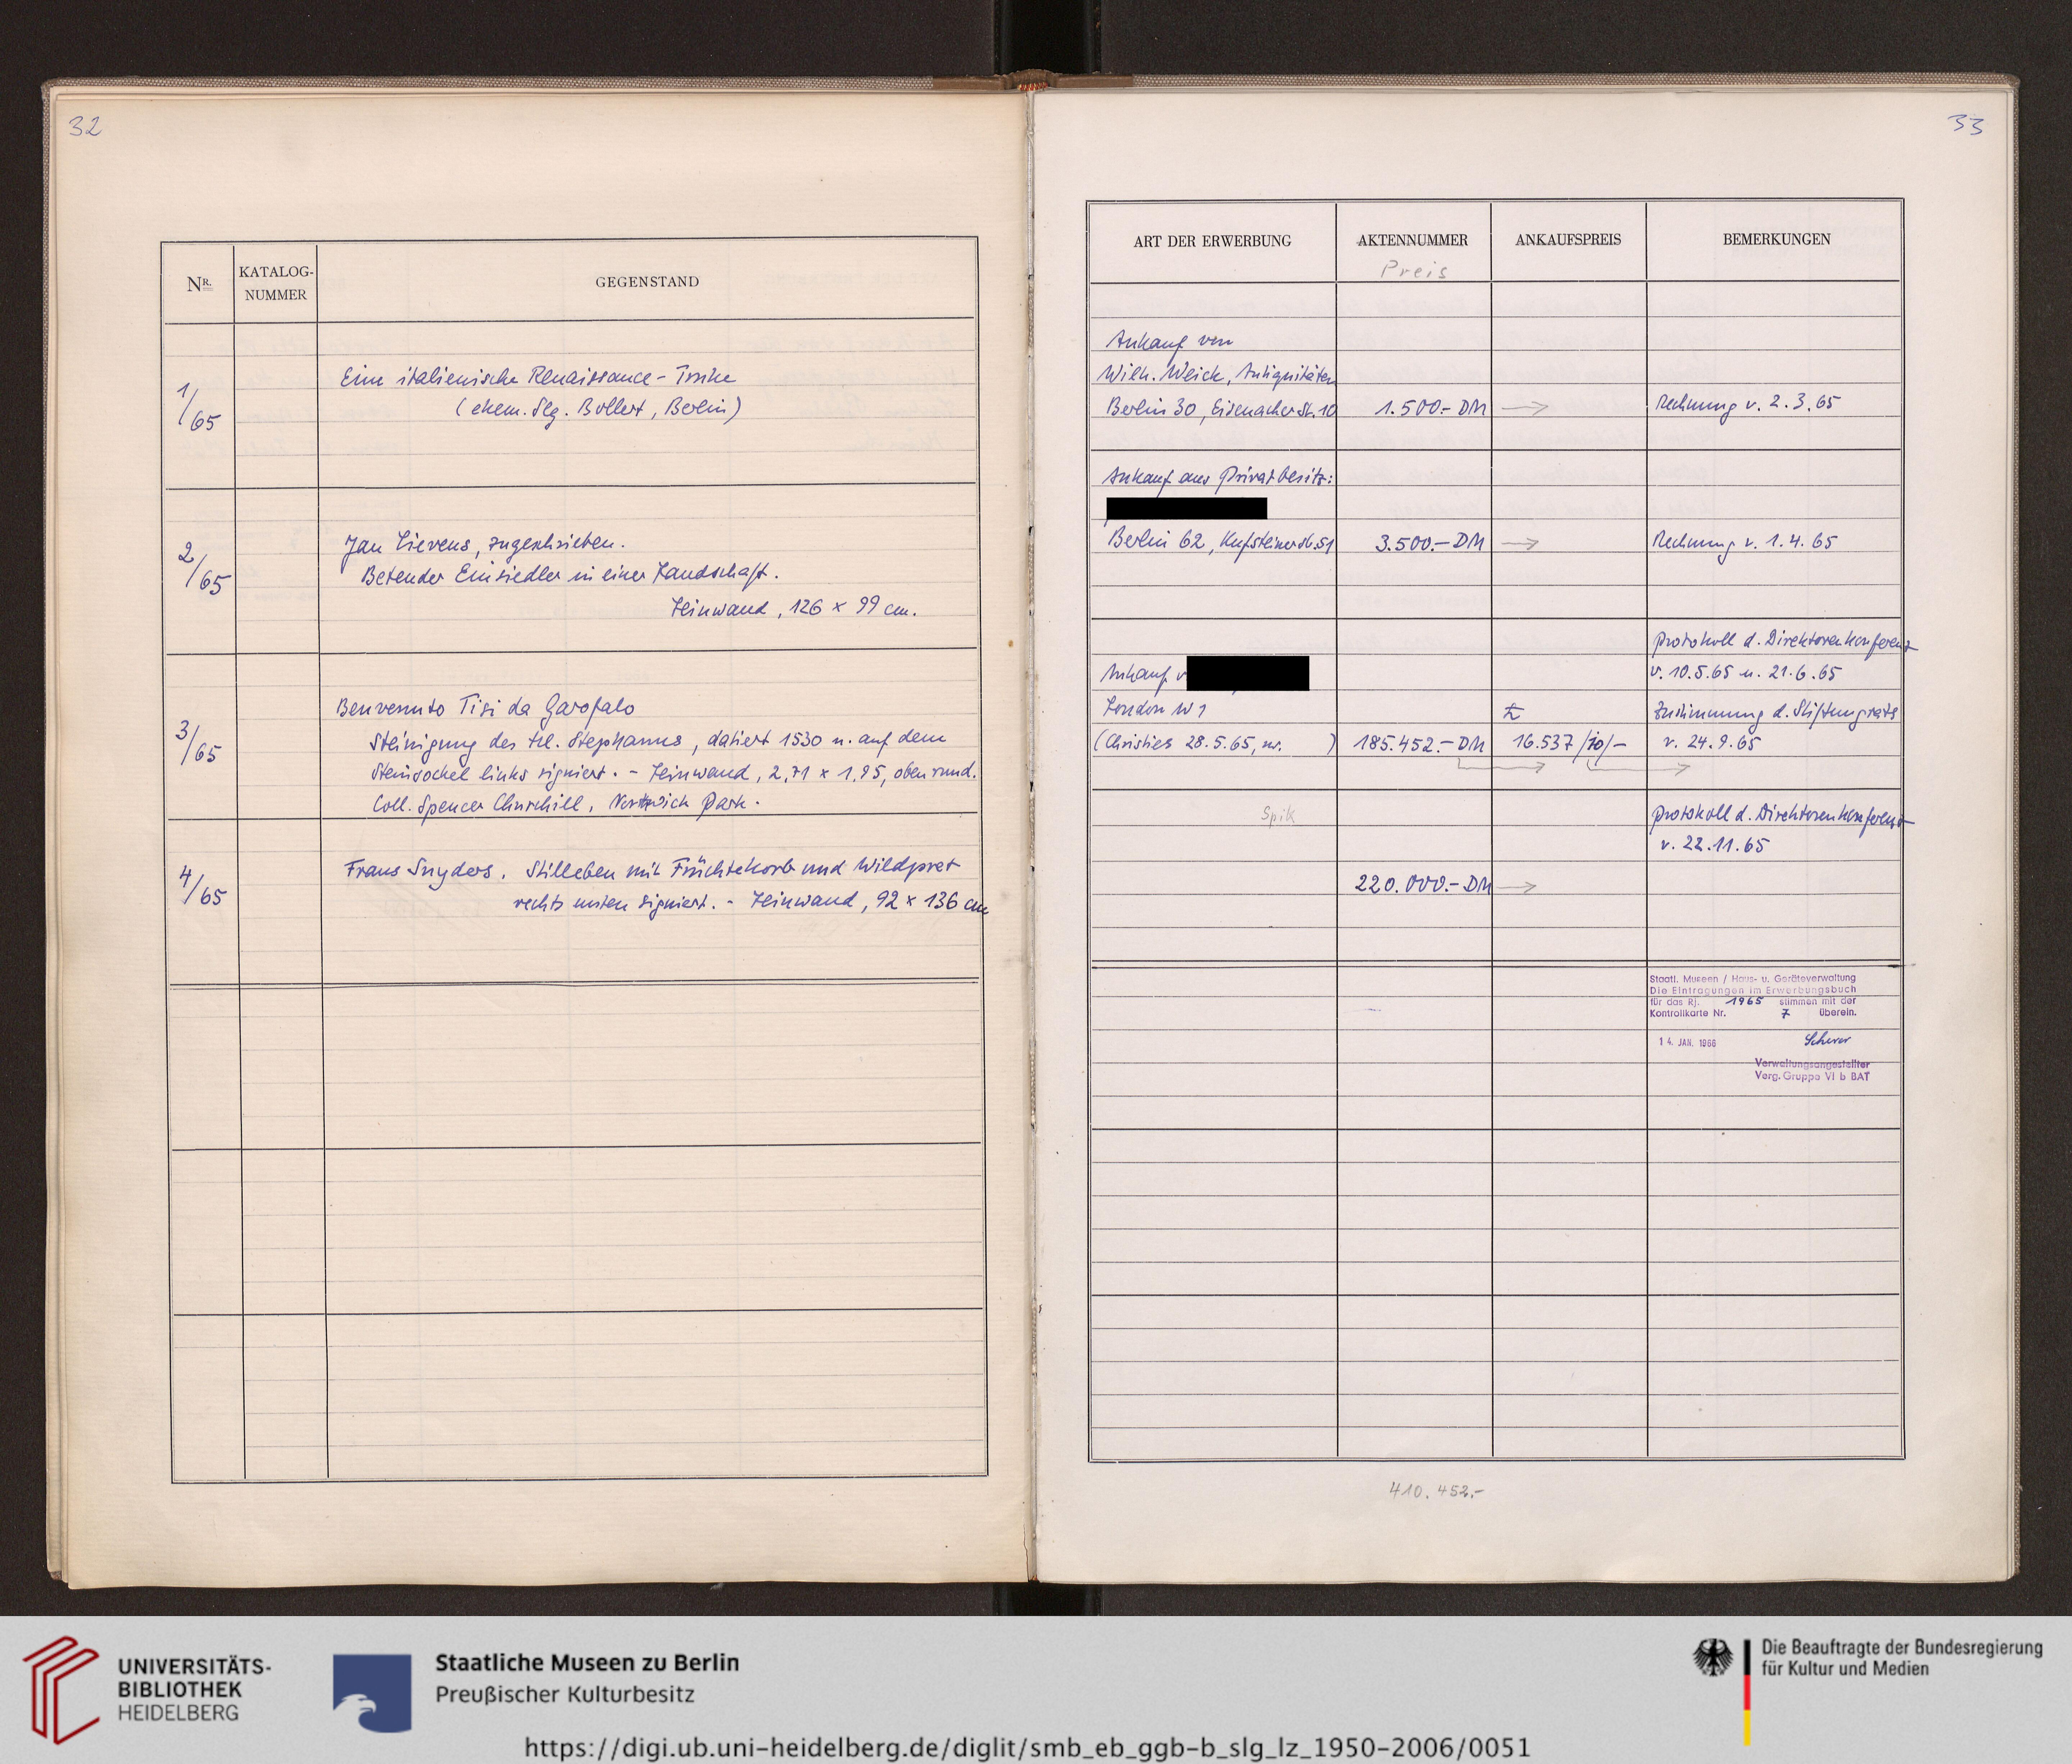 32
Nr.
KATALOG-
NUMMER
GEGENSTAND
1/65
Eine italienische Renaissance-Truhe
(ehem. Slg. Bollert, Berlin)
2/65
Jan Lievens, zugeschrieben.
Betender Einsiedler in einer Landschaft.
Leinwand, 126 x 99 cm.
3/65
Benvenuto Tisi da Garofalo
Steinigung des Hl. Stephanus, datiert 1530 u. auf dem
Steinsockel links signiert. - Leinwand, 2,71 x 1,95, oben rund.
Coll. Spencer Churchill, Northwick Park.
4/65
Frans Snyders. Stilleben mit Früchtekorb und Wildpret
rechts unten signiert. - Leinwand, 92 x 136 cm
33
ART DER ERWERBUNG
AKTENNUMMER
Preis
ANKAUFSPREIS
BEMERKUNGEN
Ankauf von
Wilh. Weick, Antiquitäten
Berlin 30, Eisenacher Str. 10
1.500.- DM
Rechnung v. 2.3.65
Ankauf aus Privatbesitz:
Berlin 62, Kufsteinerstr. 51
3.500.- DM
Rechnung v. 1.4.65
Protokoll d. Direktorenkonferenz
v. 10.5.65 u. 21.6.65
Ankauf v
London W1
£
Zustimmung d. Stiftungsrats
(Christies 28.5.65, nr. )
185.452.- DM
16.537/10/-
v. 24.9.65
Spik
Protokoll d. Direktorenkonferenz
v. 22.11.65
220.000.- DM
Staatl. Museen / Haus- u. Geräteverwaltung
Die Eintragungen im Erwerbungsbuch
für das Rj. 1965 stimmen mit der
Kontrollkarte Nr. 7 überein.
14. JAN. 1966
Verwaltungsangestellter
Verg. Gruppe VI b BAT
410.452.-
UNIVERSITÄTS-
BIBLIOTHEK
HEIDELBERG
Staatliche Museen zu Berlin
Preußischer Kulturbesitz
Die Beauftragte der Bundesregierung
für Kultur und Medien
https://digi.ub.uni-heidelberg.de/diglit/smb_eb_ggb-b_slg_lz_1950-2006/0051